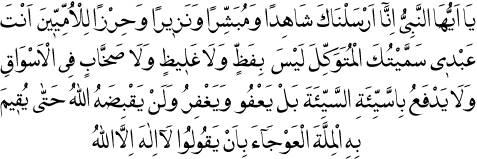 يَا اَيُّهَا النَّبِىُّ اِنَّٓا اَرْسَلْنَاكَ شَاهِدًا وَمُبَشِّرًا وَنَذِيرًا وَحِرْزًا لِلْاُمِّيّينَ اَنْتَ
عَبْدِى سَمَّيْتُكَ الْمُتَوَكِّلَ لَيْسَ بِفَظٍّ وَلَا غَلِيظٍ وَلَا صَخَّابٍ فِى الْاَسْوَاقِ
وَلَا يَدْفَعُ بِاسَّيِّئَةِ السَّيِّئَةَ بَلْ يَعْفُو وَيَغْفِرُ وَلَنْ يَقْبِضَهُ اللهُ حَتّٰى يُقِيمَ
بِهِ الْمِلَّةَ الْعَوْجَٓاءَ بِاَنْ يَقُولُوا لَٓا اِلٰهَ اِلَّا اللهُ